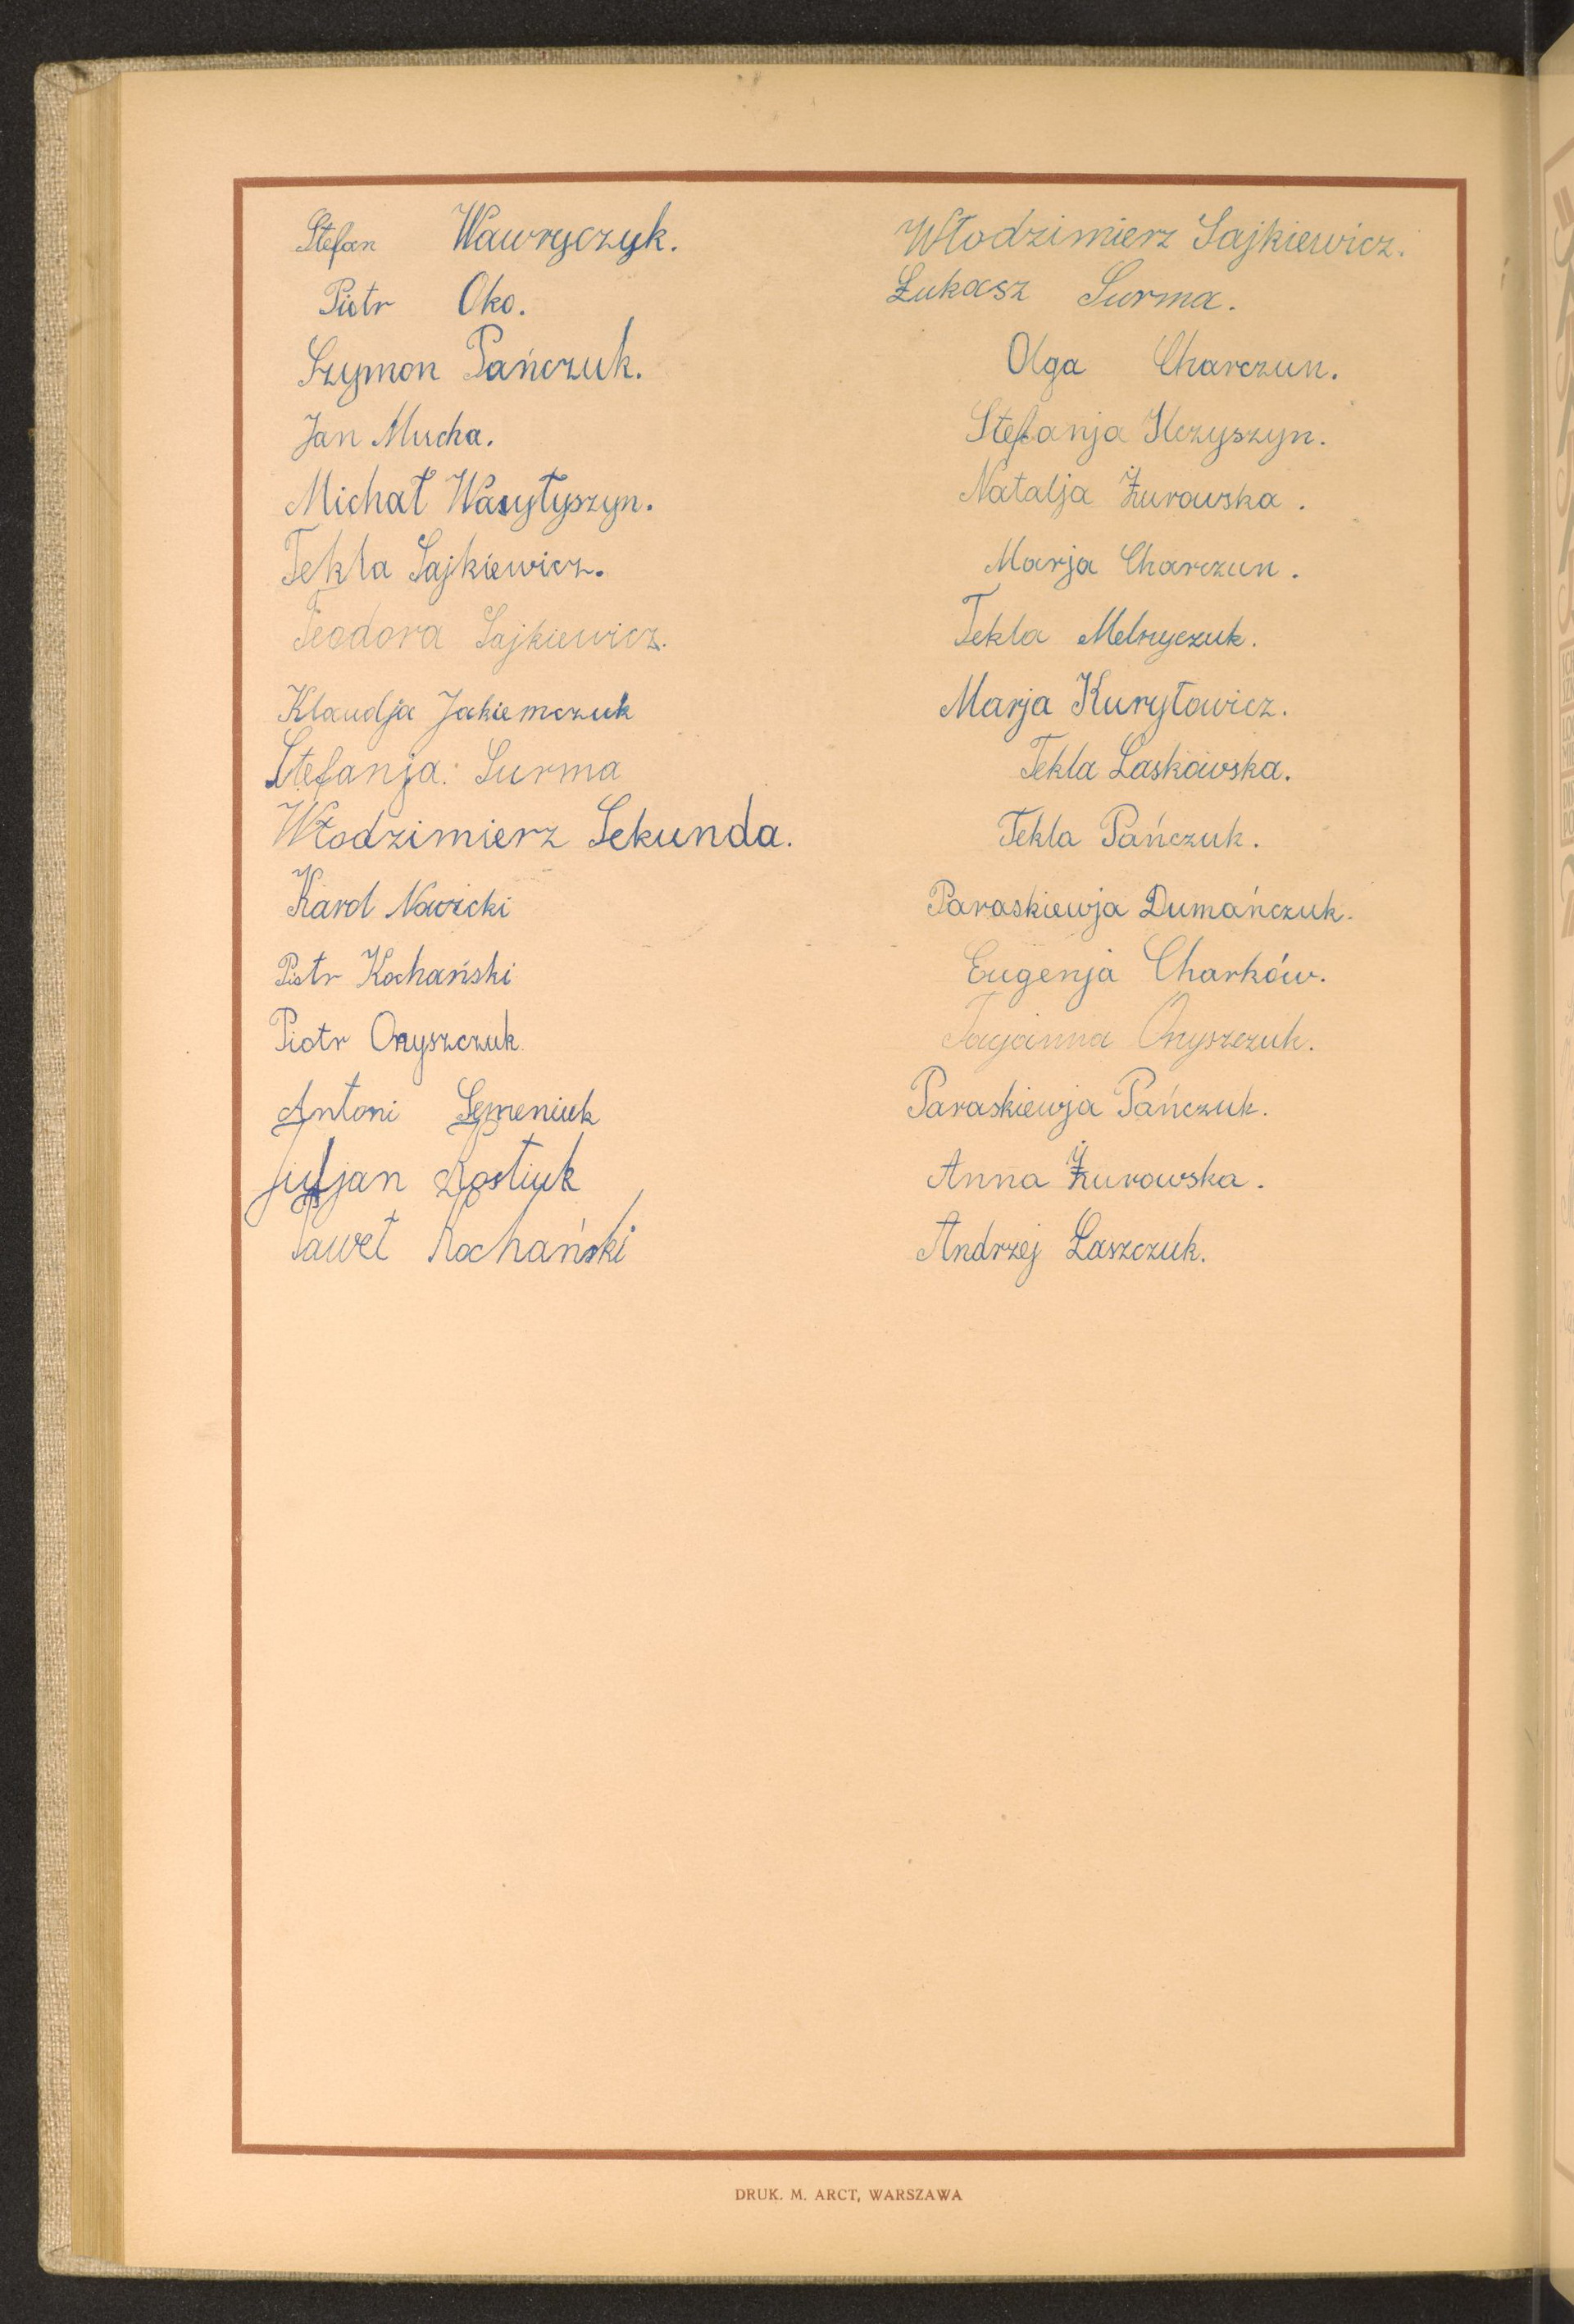 Stefan Wawryczyk.
Piotr Oko.
Szymon Pańczuk.
Jan Mucha.
Michał Wasytyszyn.
Tekla Sajkiewicz.
Teodora Sajkiewicz.
Klaudja Jakiemczuk
Stefanja Surma
Włodzimierz Sekunda.
Karol Nawicki
Piotr Kochański
Piotr Onyszczuk
Antoni Semeniuk
Juljan Kostiuk
Paweł Kochański
Włodzimierz Sajkiewicz.
Łukasz Surma.
Olga Charczun.
Stefanja
Natalja Żurowska.
Marja Charczun.
Tekla Melnyczuk.
Marja Kuryłowicz.
Tekla Laskowska.
Tekla Pańczuk.
Paraskiewja Dumańczuk.
Eugenja Charków.
Onyszczuk.
Paraskiewja Pańczuk.
Anna Żurowska.
Andrzej Łaszczuk.
DRUK. M. ARCT, WARSZAWA